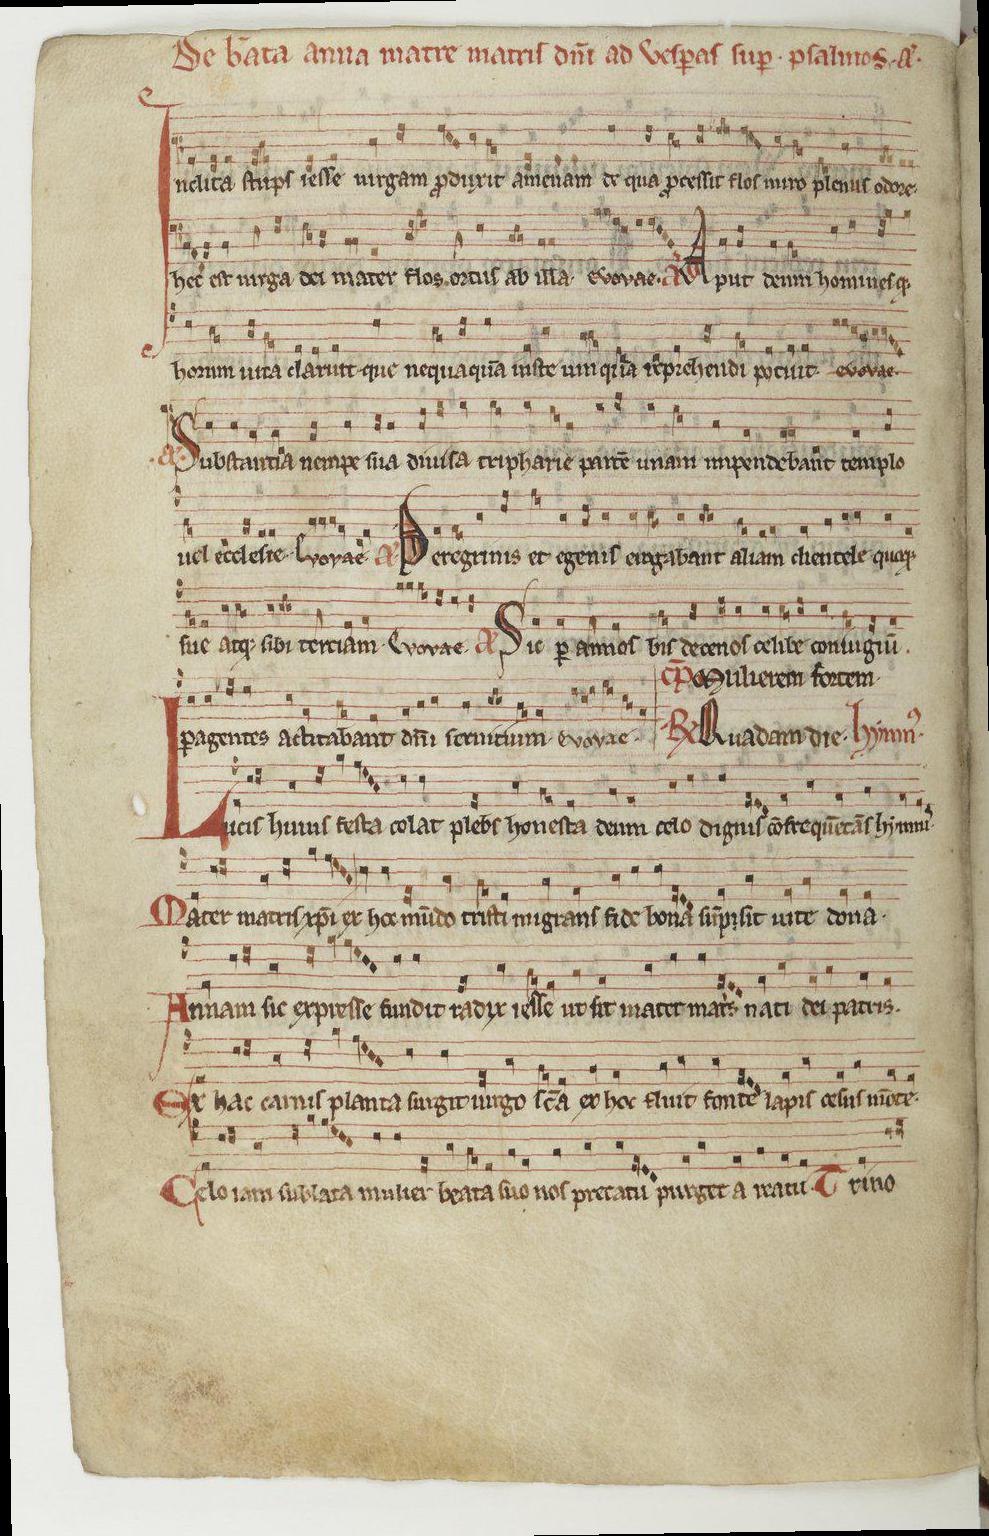 De b̄ata anna matre matris dn̄i ad vesp̄as sup̄ · psalmos · A̅ ·
Inclita stirps iesse virgam p̄duxit amenam de qua p̄cessit flos miro plenus odore·
hec est virga dei mater flos ortus ab illa· evovae· A̅ Aput deum hominesq̄
horum vita claruit· que nequaquā iuste umquā reprehendi potuit· evovae·
A̅ Substantia nempe sua divisa tripharie partē unam impendebant templo
vel ecclesie· Evovae· A̅ Peregrinis et egenis erogabant aliam clientele quoq̄
sue atq̄ sibi terciam· Evovae· A̅ Sic p̄ annos bis decenos celibe coniugiū·
cp̄ Mulierem fortem·
pagentes actitabant dn̄i servitium· evovae· R̷ Quadam die· Hymn⁹·
Lucis huius festa colat plebs honesta deum celo dignis cōfrequētās hymnis·
Mater matris xp̄i ex hoc mūdo tristi migrans fide bona sūpsit vite dona·
Annam sic expresse fundit radix iesse ut sit mater mat̄s nati dei patris·
Ex hac carnis planta surgit virgo sc̄a ex hoc fluit fonte lapis cesus mōte·
Celo iam sublata mulier beata suo nos precatu purget a reatu· Trino